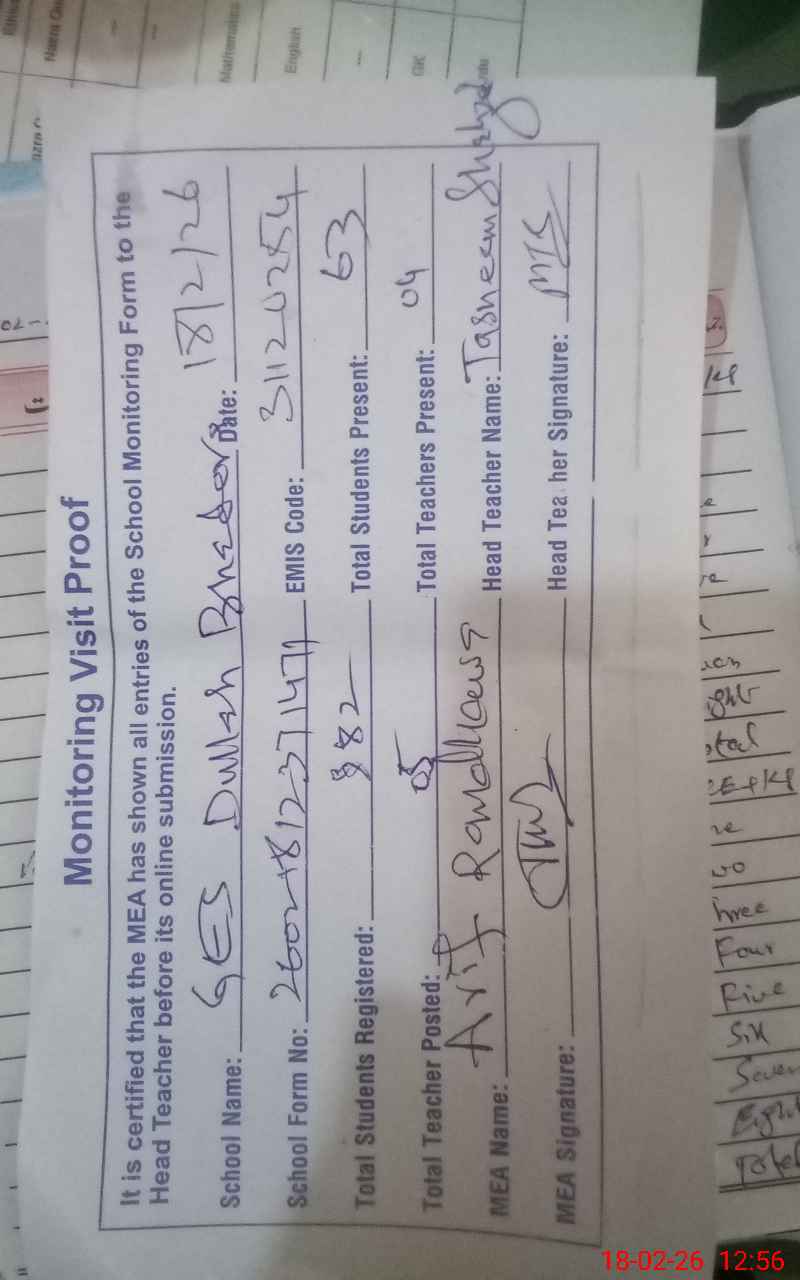 Monitoring Visit Proof
It is certified that the MEA has shown all entries of the School Monitoring Form to the
Head Teacher before its online submission.
School Name: GES Dullah Bhadera Date: 18/2/26
School Form No: EMIS Code: 31120254
Total Students Registered: 882 Total Students Present: 63
Total Teacher Posted: 05 Total Teachers Present: 04
MEA Name: Arif Randhawa Head Teacher Name: Tasneem
MEA Signature: Head Tea her Signature:
Mathematics
English
GK
Three
Four
Five
Six
Seven
Eight
Total
18-02-26 12:56